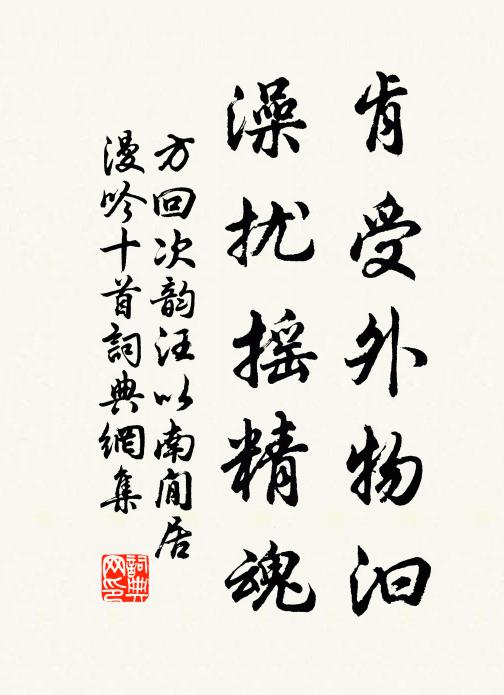 肯受外物汩
澡扰摇精魂
方回次韵汪以南闲居
漫吟十首詞典網集
詞典
网印